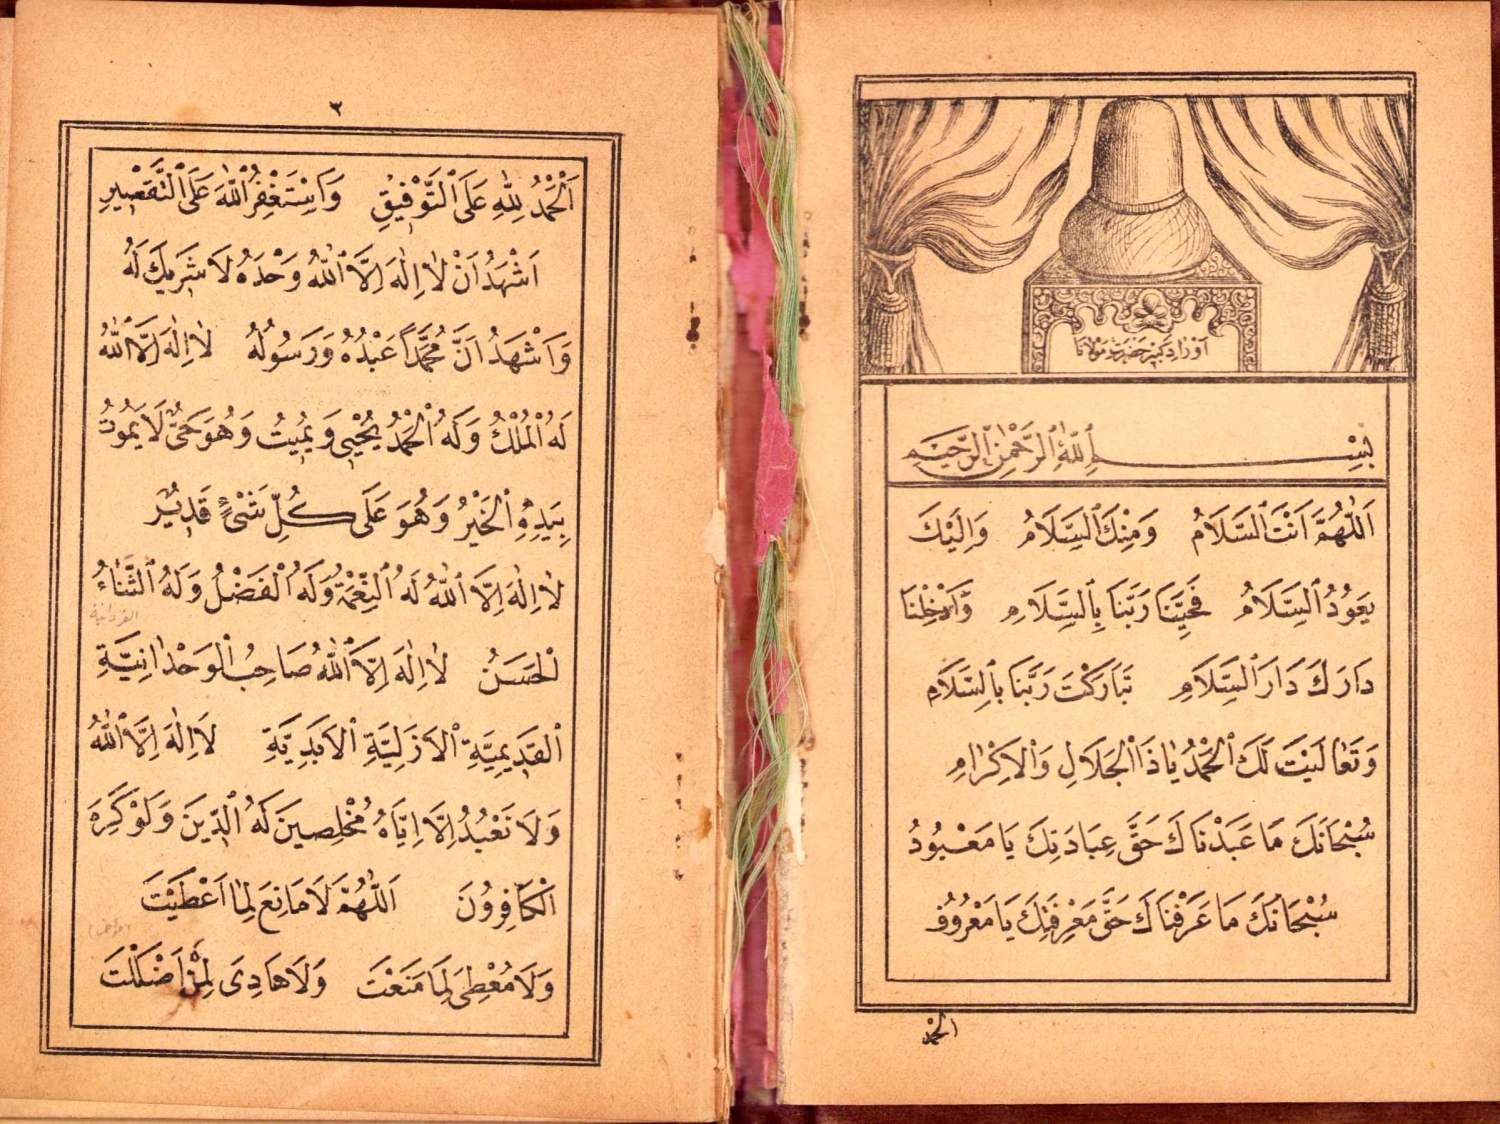 اَوْرَادِ كَبِيرِ حَضْرَتِ مَوْلَانَا
بِسْمِ ٱللّٰهِ ٱلرَّحْمٰنِ ٱلرَّحِيمِ
اَللّٰهُمَّ اَنْتَ ٱلسَّلَامُ وَمِنْكَ ٱلسَّلَامُ وَاِلَيْكَ
يَعُودُ ٱلسَّلَامُ فَحَيِّنَا رَبَّنَا بِٱلسَّلَامِ وَاَدْخِلْنَا
دَارَكَ دَارَ ٱلسَّلَامِ تَبَارَكْتَ رَبَّنَا بِالسَّلَامِ
وَتَعَالَيْتَ لَكَ ٱلْحَمْدُ يَا ذَا ٱلْجَلَالِ وَٱلْاِكْرَامِ
سُبْحَانَكَ مَا عَبَدْنَاكَ حَقَّ عِبَادَتِكَ يَا مَعْبُودُ
سُبْحَانَكَ مَا عَرَفْنَاكَ حَقَّ مَعْرِفَتِكَ يَا مَعْرُوفُ
الحمد
٢
اَلْحَمْدُ لِلّٰهِ عَلَى ٱلتَّوْفِيقِ وَاَسْتَغْفِرُ ٱللّٰهَ عَلَى ٱلتَّقْصِيرِ
اَشْهَدُ اَنْ لَا اِلٰهَ اِلَّا ٱللّٰهُ وَحْدَهُ لَا شَرِيكَ لَهُ
وَاَشْهَدُ اَنَّ مُحَمَّداً عَبْدُهُ وَرَسُولُهُ لَا اِلٰهَ اِلَّا ٱللّٰهُ
لَهُ ٱلْمُلْكُ وَلَهُ ٱلْحَمْدُ يُحْيِي وَيُمِيتُ وَهُوَ حَيٌّ لَا يَمُوتُ
بِيَدِهِ ٱلْخَيْرُ وَهُوَ عَلَى كُلِّ شَىْءٍ قَدِيرٌ
لَا اِلٰهَ اِلَّا ٱللّٰهُ لَهُ ٱلنِّعْمَةُ وَلَهُ ٱلْفَضْلُ وَلَهُ ٱلثَّنَاءُ
الفردانية
لْحَسَنُ لَا اِلٰهَ اِلَّا ٱللّٰهُ صَاحِبُ ٱلْوَحْدَانِيَّةِ
ٱلْقَدِيمِيَّةِ ٱلْاَزَلِيَّةِ ٱلْاَبَدِيَّةِ لَا اِلٰهَ اِلَّا ٱللّٰهُ
وَلَا نَعْبُدُ اِلَّا اِيَّاهُ مُخْلِصِينَ لَهُ ٱلدِّينَ وَلَوْ كَرِهَ
ٱلْكَافِرُونَ اَللّٰهُمَّ لَا مَانِعَ لِمَا اَعْطَيْتَ
وَلَا مُعْطِىَ لِمَا مَنَعْتَ وَلَا هَادِىَ لِمَنْ اَضْلَلْتَ